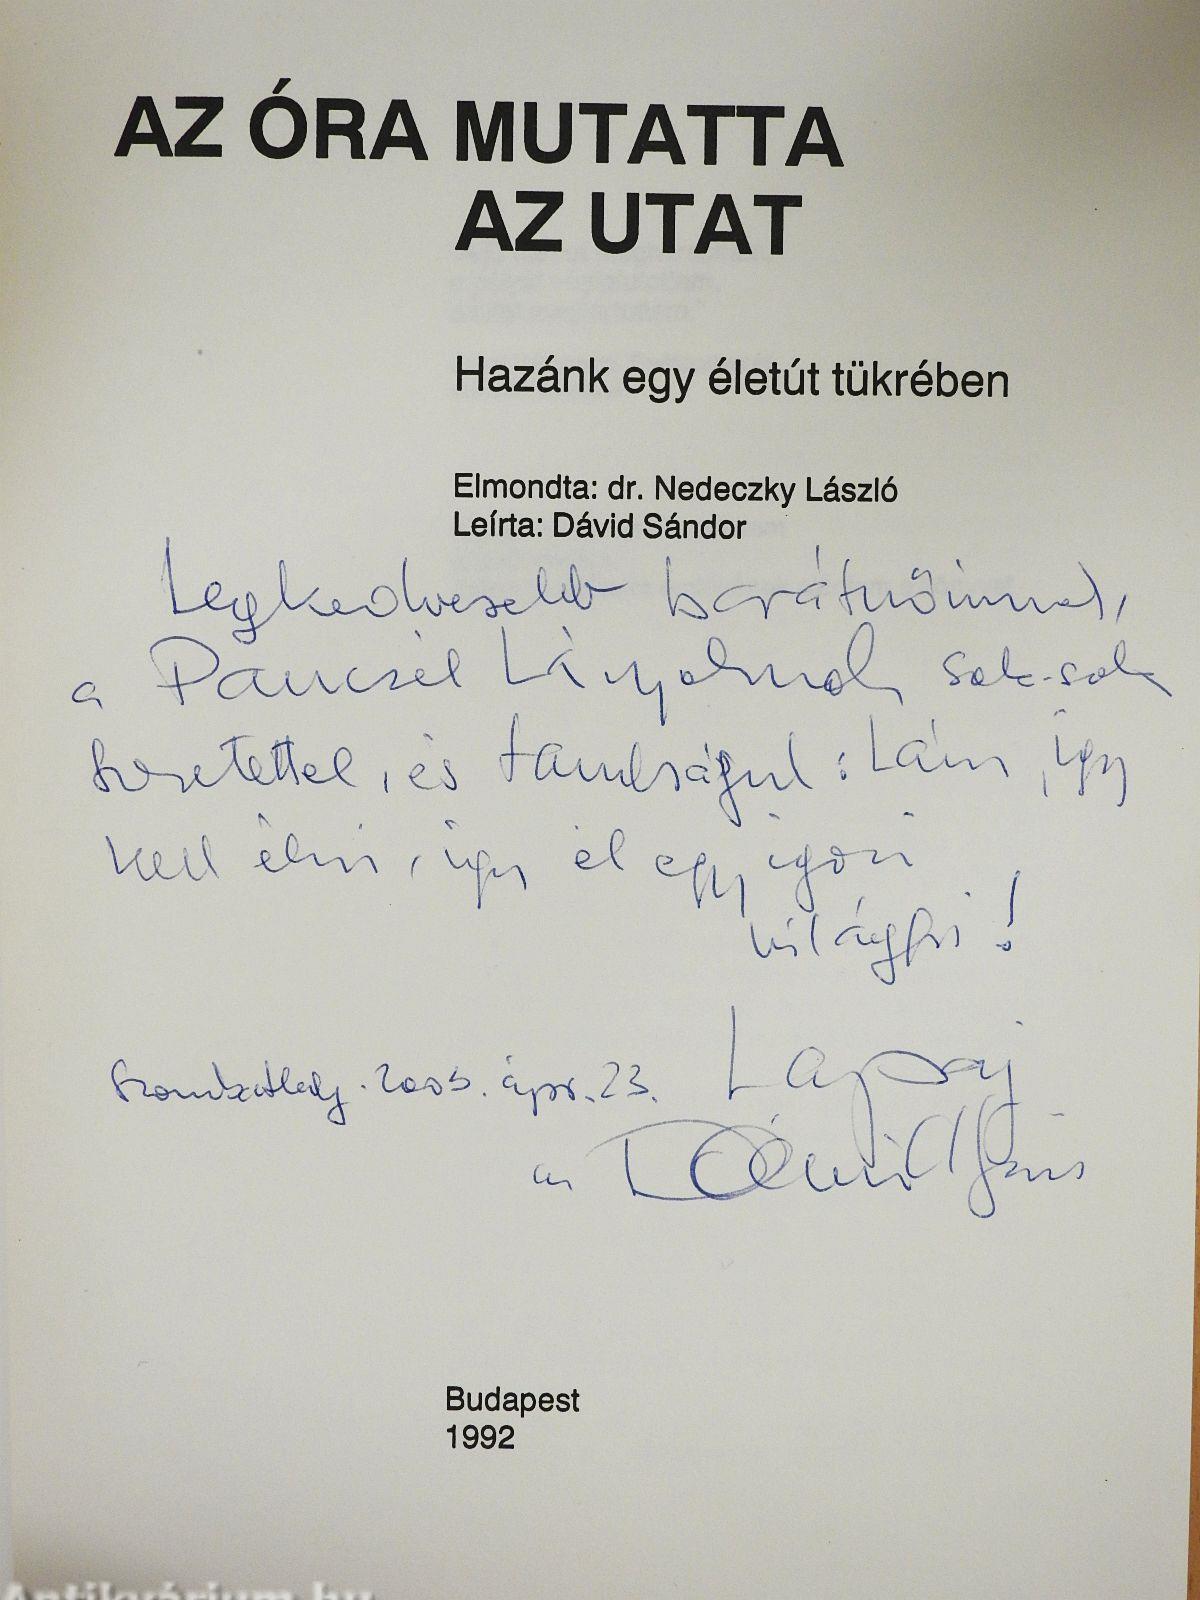 AZ ÓRA MUTATTA
AZ UTAT
Hazánk egy életút tükrében
Elmondta: dr. Nedeczky László
Leírta: Dávid Sándor
Legkedvesebb barátnőimnek,
a Pancsél Lányoknak sok-sok
szeretettel, és tanulságul: Lám, így
kell élni, így él egy igazi
világfi!
Szombathely. 2003. ápr. 23.
az Dávid
Budapest
1992
Antikvárium.hu